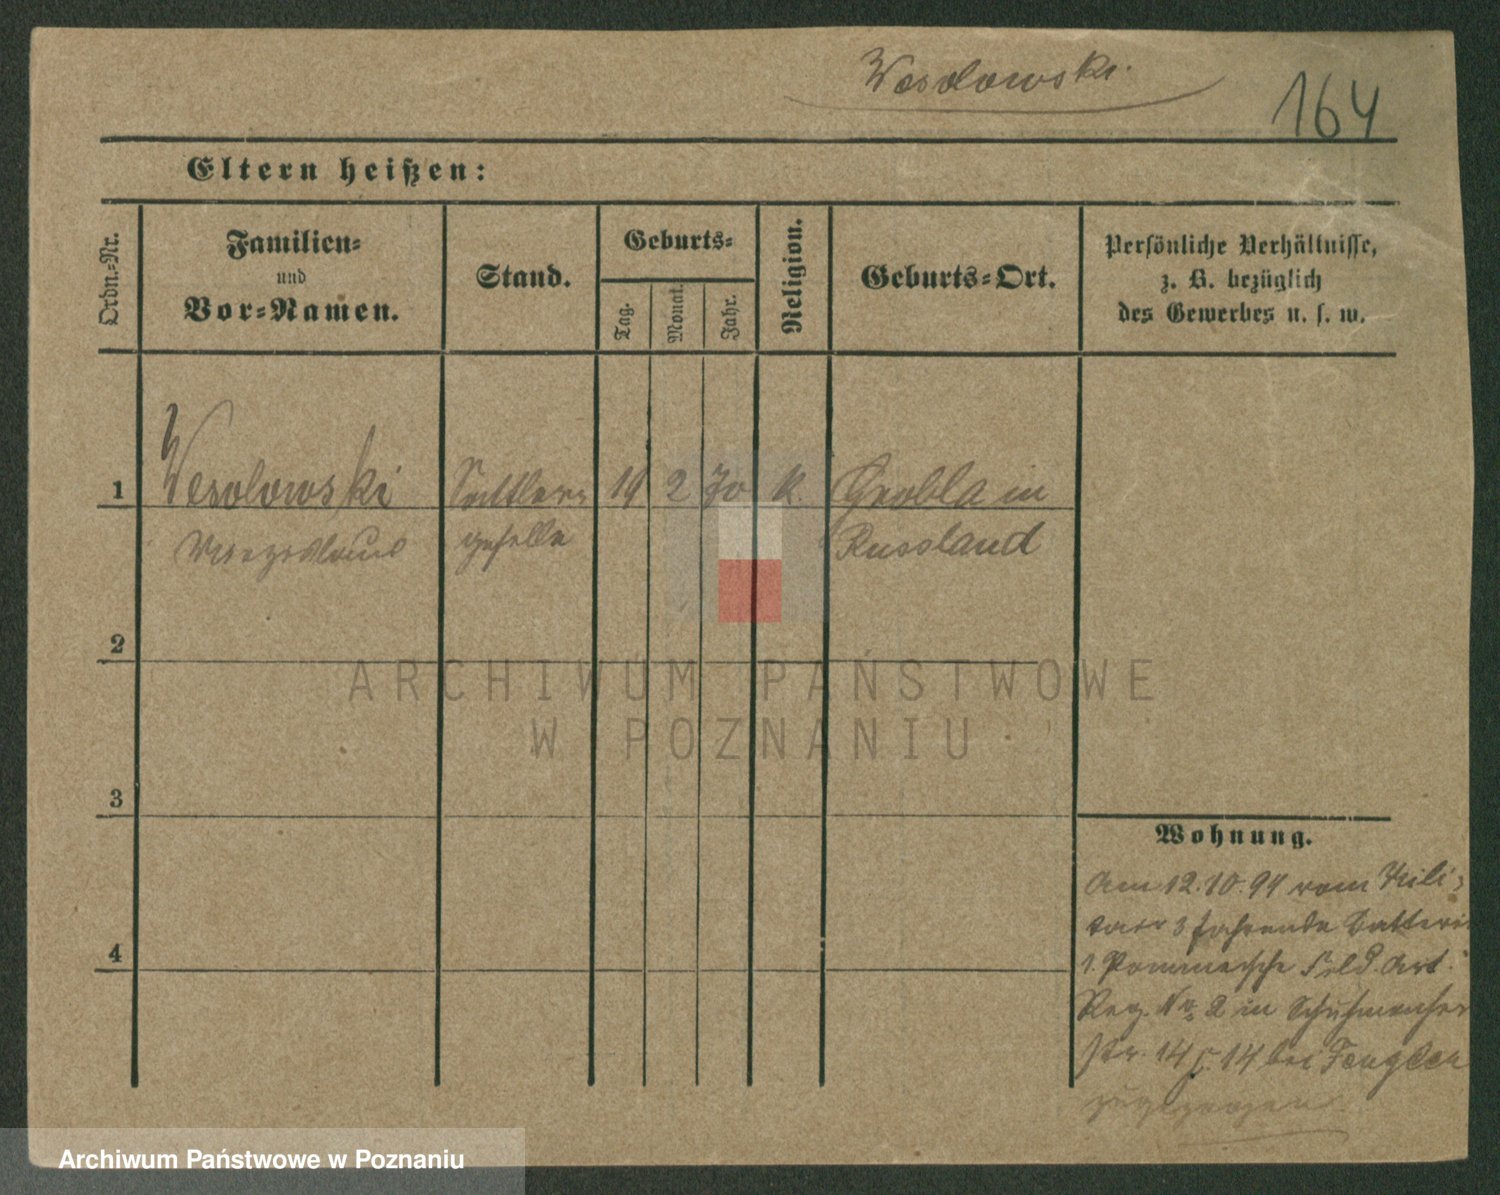 Wesolowski.
164
Eltern heißen:
Ordn.=Nr.
Familien=
und
Vor=Namen.
Stand.
Geburts=
Tag.
Monat.
Jahr.
Religion.
Geburts=Ort.
Persönliche Verhältnisse,
z. B. bezüglich
des Gewerbes u. s. w.
1 Wesolowski Sattler= 2 70 K. Grobla in
geselle Russland
2
ARCHIWUM PAŃSTWOWE
W POZNANIU
3
Wohnung.
Am 12.10.94 vom Mili=
tair 3 fahrende Batterie
4
1. Pommersche Feld. Art.
Reg. No. 2 in Schuhmacher
str. 14 14 bei
zugezogen
Archiwum Państwowe w Poznaniu